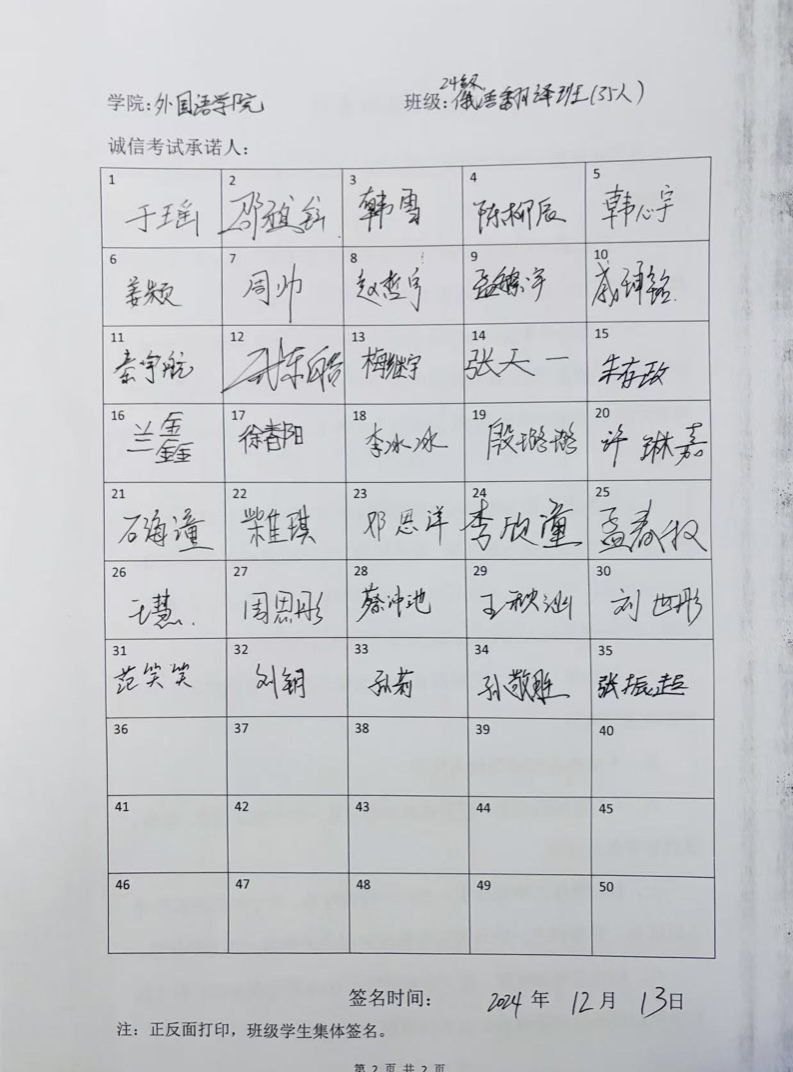 学院：外国语学院 班级：24级 翻译班（35人）
诚信考试承诺人：
1 于瑶 2 邵 3 韩雪 4 陈柳辰 5 韩心宇
6 姜颖 7 周帅 8 赵哲宇 9 孟 宇 10 戚坤铭
11 秦宇航 12 13 梅继宇 14 张天一 15 朱存政
16 兰鑫鑫 17 徐春阳 18 李冰冰 19 殷璐璐 20 许琳嘉
21 石海潼 22 柴维琪 23 邓恩洋 24 李欣潼 25 孟春
26 王慧 27 周恩彤 28 蔡冲池 29 王秧汕 30 刘世彤
31 范笑笑 32 刘钥 33 孙莉 34 孙敬胜 35 张振超
36 37 38 39 40
41 42 43 44 45
46 47 48 49 50
签名时间： 2024 年 12 月 13 日
注：正反面打印，班级学生集体签名。
第 2 页 共 2 页